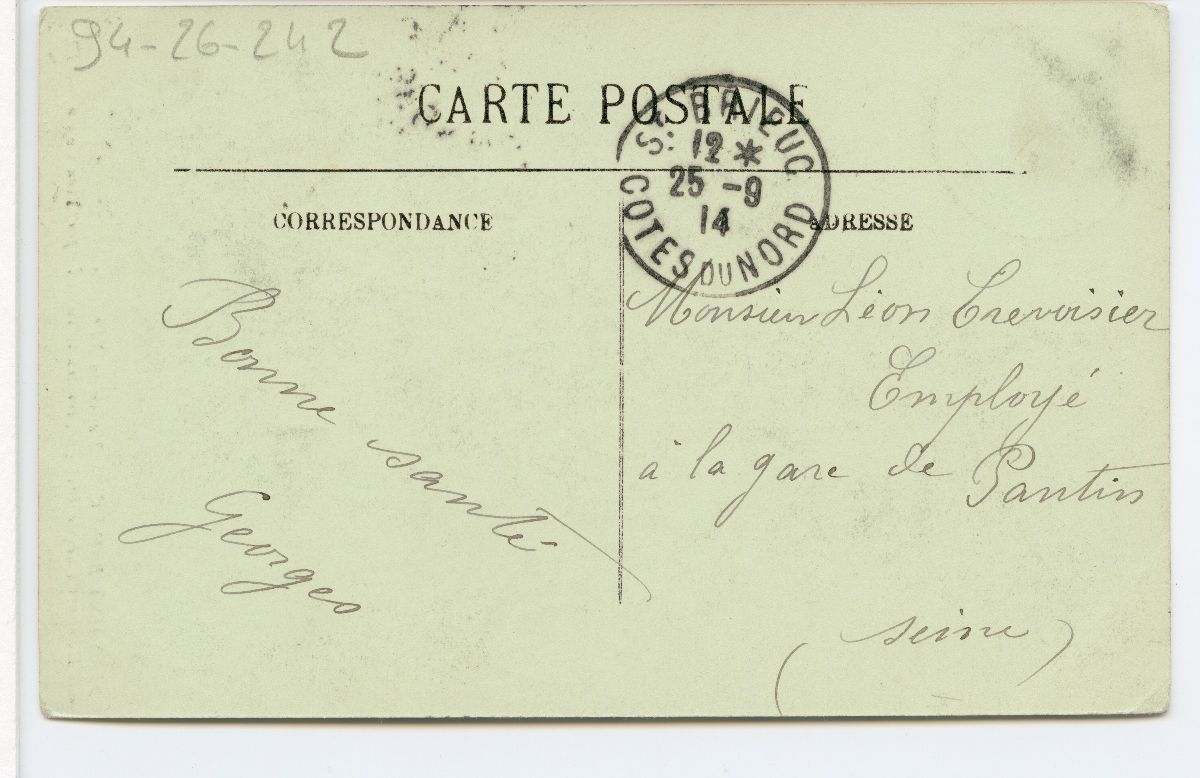 94-26-242
CARTE POSTALE
ST BRIEUC
12 *
25 -9
14
COTES DU NORD
CORRESPONDANCE
ADRESSE
Bonne santé
Georges
Monsieur Léon Crevoisier
Employé
à la gare de Pantin
(seine)